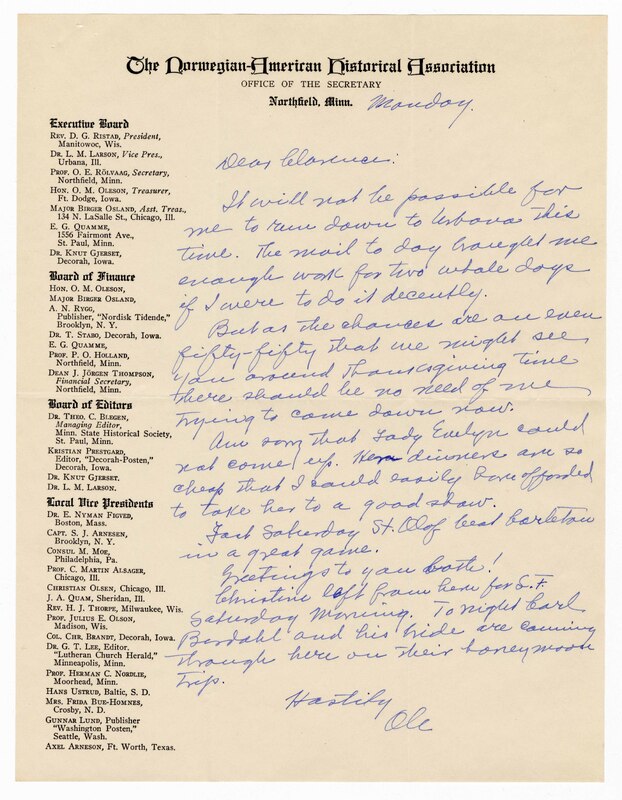 The Norwegian-American Historical Association
OFFICE OF THE SECRETARY
Northfield, Minn.
Monday.
Executive Board
REV. D. G. RISTAD, President,
Manitowoc, Wis.
DR. L. M. LARSON, Vice Pres.,
Urbana, Ill.
PROF. O. E. RÖLVAAG, Secretary,
Northfield, Minn.
HON. O. M. OLESON, Treasurer,
Ft. Dodge, Iowa.
MAJOR BIRGER OSLAND, Asst. Treas.,
134 N. LaSalle St., Chicago, Ill.
E. G. QUAMME,
1556 Fairmont Ave.,
St. Paul, Minn.
DR. KNUT GJERSET,
Decorah, Iowa.
Board of Finance
HON. O. M. OLESON,
MAJOR BIRGER OSLAND,
A. N. RYGG,
Publisher, "Nordisk Tidende,"
Brooklyn, N. Y.
DR. T. STABO, Decorah, Iowa.
E. G. QUAMME,
PROF. P. O. HOLLAND,
Northfield, Minn.
DEAN J. JÖRGEN THOMPSON,
Financial Secretary,
Northfield, Minn.
Board of Editors
DR. THEO. C. BLEGEN,
Managing Editor,
Minn. State Historical Society,
St. Paul, Minn.
KRISTIAN PRESTGARD,
Editor, "Decorah-Posten,"
Decorah, Iowa.
DR. KNUT GJERSET.
DR. L. M. LARSON.
Local Vice Presidents
DR. E. NYMAN FIGVED,
Boston, Mass.
CAPT. S. J. ARNESEN,
Brooklyn, N. Y.
CONSUL M. MOE,
Philadelphia, Pa.
PROF. C. MARTIN ALSAGER,
Chicago, Ill.
CHRISTIAN OLSEN, Chicago, Ill.
J. A. QUAM, Sheridan, Ill.
REV. H. J. THORPE, Milwaukee, Wis.
PROF. JULIUS E. OLSON,
Madison, Wis.
COL. CHR. BRANDT, Decorah, Iowa.
DR. G. T. LEE, Editor,
"Lutheran Church Herald,"
Minneapolis, Minn.
PROF. HERMAN C. NORDLIE,
Moorhead, Minn.
HANS USTRUD, Baltic, S. D.
MRS. FRIDA BUE-HOMNES,
Crosby, N. D.
GUNNAR LUND, Publisher
"Washington Posten,"
Seattle, Wash.
AXEL ARNESON, Ft. Worth, Texas.
Dear Clarence:
It will not be possible for
me to run down to Urbana this
time. The mail to day brought me
enough work for two whole days
if I were to do it decently.
But as the chances are an even
fifty-fifty that we might see
you around Thanksgiving time
there should be no need of me
trying to come down now.
Am sorry that Lady Evelyn could
not come up. dinners are so
cheap that I could easily have afforded
to take her to a good show.
Last Saturday St. Olaf beat Carleton
in a great game.
Greetings to you both!
Christine left from here for S.F.
Saturday morning. Tonight Carl
Bordahl and his bride are coming
through here on their honeymoon
trip.
Hastily
Ole